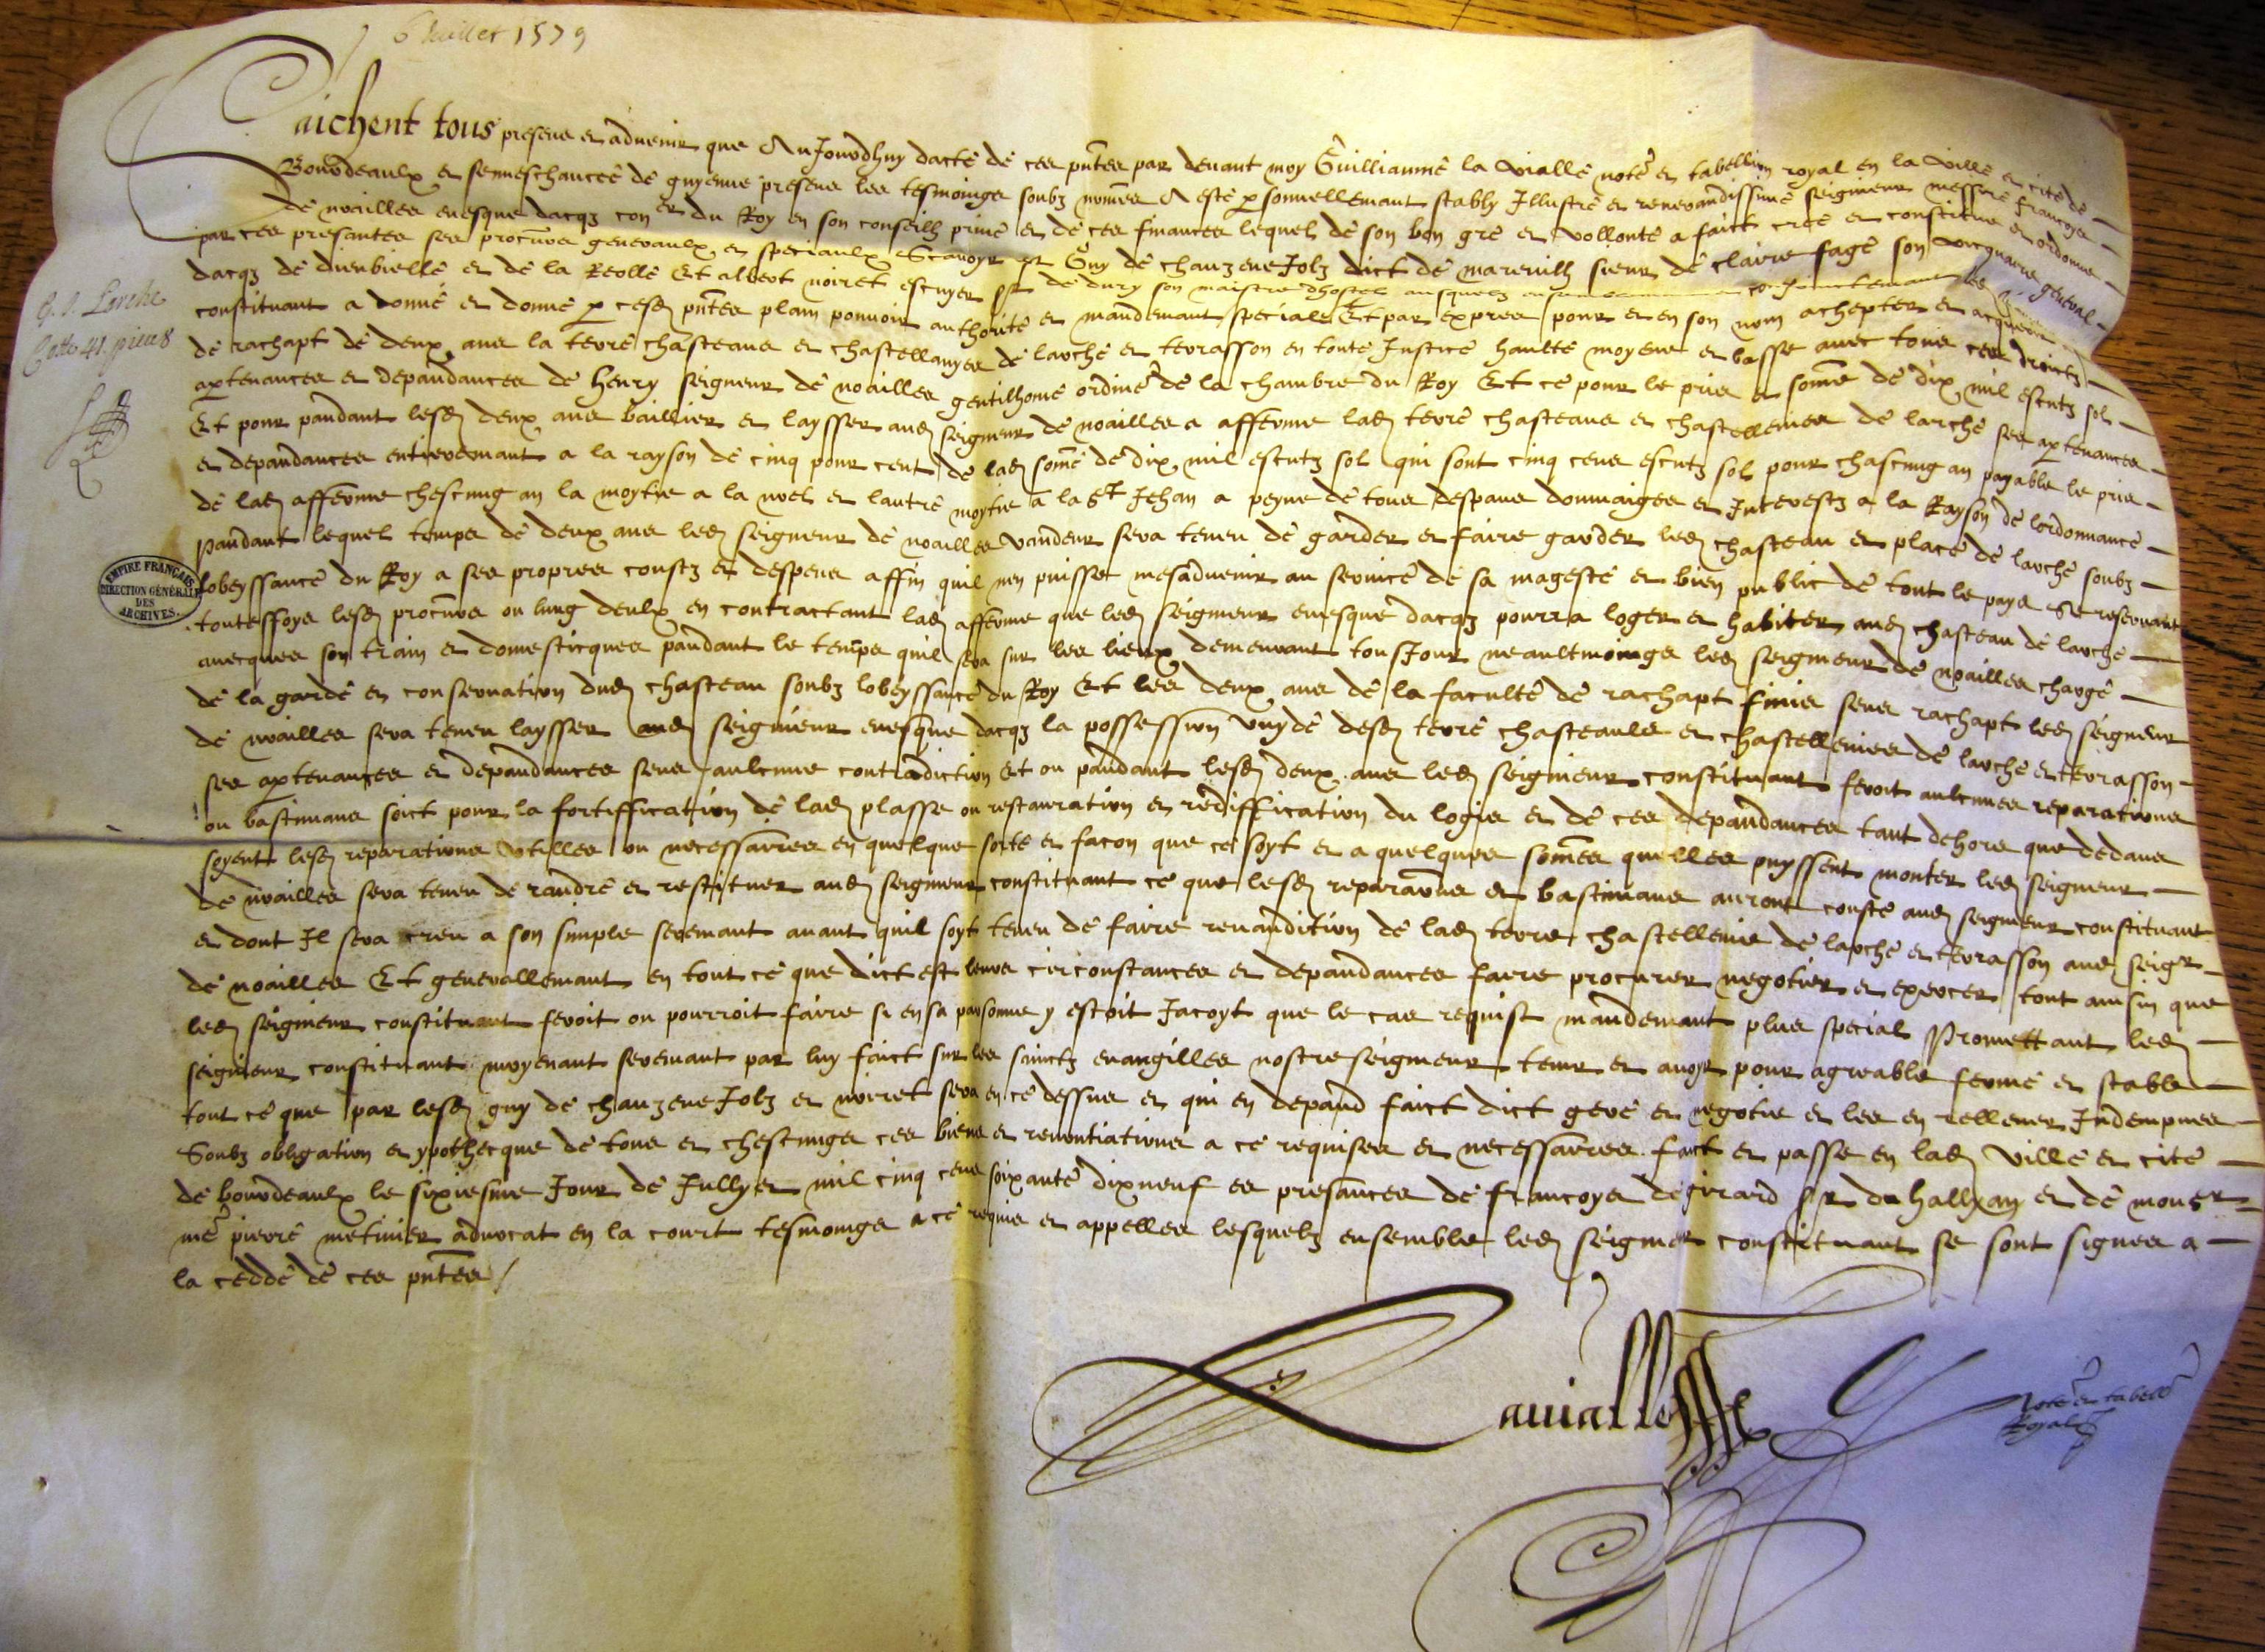 6 Juillet 1579
Saichent tous presens et advenir que Aujourdhuy dacte de ces pntes par devant moy Guilliaume la vialle note et tabellion royal en la ville et cité de
Bourdeaulx et senneschaucee de guyenne presens les tesmoings soubz nomes A este personnellemant stably Illustre et reverandissime seigneur messire francoys
de noailles evesque dacqz coner du Roy en son conseilh prive et de ces finances lequel de son bon gre et vollonte a faict cree et constitue et ordonne
par ces presantes ses procures generaulx et speciaulx Scavoyr Guy de chauzenejolz dict de mareuilh sieur de claire fage son vicquaire general
dacqz de et de la Reolle Et albert noiret escuyer sr de dury son maistre dhostel ausquelz conjoinctemant
constituant a donne et donne p cesd pntes plain pouvoir authorite et mandemant special Et par expres pour et en son nom achepter et acquerir
de rachapt de deux ans la terre chasteaus et chastellanyes de larche et terrasson en toute Justice haulte moyene et basse avec tous ces droictz
aptenances et depandances de henry seigneur de noailles gentilhome ordine de la chambre du Roy Et ce pour le pris et some de dix mil escutz sol
Et pour pandant lesd deux ans baillier et laysser aud seigneur de noailles a afferme lad terre chasteaus et chastellenies de larche ses aptenances
et depandances entieremant a la rayson de cinq pour cent de lad some de dix mil escutz sol qui sont cinq cens escutz sol pour chascung an payable le pris
de lad afferme chescung an la moytie a la noel et lautre moytie a la St Jehan a peyne de tous despans dommaiges et Interestz a la Rayson de lordonnance
Pandant lequel temps de deux ans led seigneur de noailles vandeur sera teneu de garder et faire garder led chasteau et place de larche soubz
lobeyssance du Roy a ses propres coustz et despens affin quil nen puisse mesadvenir au service de sa mageste et bien public de tout le pays Se reservant
touteffoys lesd procures ou lung deulx en contractant lad afferme que led seigneur evesque dacqz pourra loger et habiter aud chasteau de larche
avecques son train et domesticques pandant le temps quil sera sur les lieux demeurant tousjour neaultmoings led seigneur de noailles charge
de la garde et conservation dud chasteau soubz lobeyssance du Roy Et les deux ans de la faculte de rachapt finis sens rachapt led seigneur
de noailles sera teneu laysser aud seigneur evesque dacqz la possession vuyde desd terre chasteaulx et chastellenies de larche et terrasson
ses aptenances et depandances sens aulcune contradiction Et ou pandant lesd deux ans led seigneur constituant feroit aulcunes reparations
ou bastimans soict pour la fortiffication de lad plasse ou restauration et rediffication du logis et de ces depandances tant dehors que dedans
soyent lesd reparations utilles ou necessaires en quelque sorte et facon que ce soyt et a quelques somes quelles puyssent monter led seigneur
de noailles sera teneu de randre et restituer aud seigneur constituant ce que lesd reparaons et bastimans auront couste aud seigneur constituant
et dont Il sera creu a son simple seremant avant quil soyt teneu de faire revandition de lad terre chastellenie de larche et terrasson aud seigr
de noailles Et generallemant en tout ce que dict est leurs circonstances et depandances faire procurer negotier et exercer tout ainsin que
led seigneur constituant feroit ou pourroit faire si en sa personne y estoit Jacoyt que le cas requist mandemant plus special Promettant led
seigneur constituant moyenant seremant par luy faict sur les sainctz evangilles nostre seigneur tenir et avoyr pour agreable ferme et stable
tout ce que par lesd guy de chauzenejolz et noiret sera en ce dessus et qui en depand faict dict gere et negotie et les en rellever Indempnes
Soubz obligation et ypothecque de tous et chescungs ces biens et renontiations a ce requises et necessaires faict et passe en lad ville et cite
de bourdeaulx le sixiesme Jour de Jullyet mil cinq cens soixante dixneuf es presances de francoys de girard sr du hallyan et de monsr
me pierre metivier advocat en la court tesmoings a ce requis et appelles lesquelz ensemble led seigner constituant se sont signes a
la cedde de ces pntes
G. I. Larche
Cotte 41. piece 8
EMPIRE FRANÇAIS
DIRECTION GÉNÉRALE
DES
ARCHIVES.
Lavialle
note et tabellr
Royal